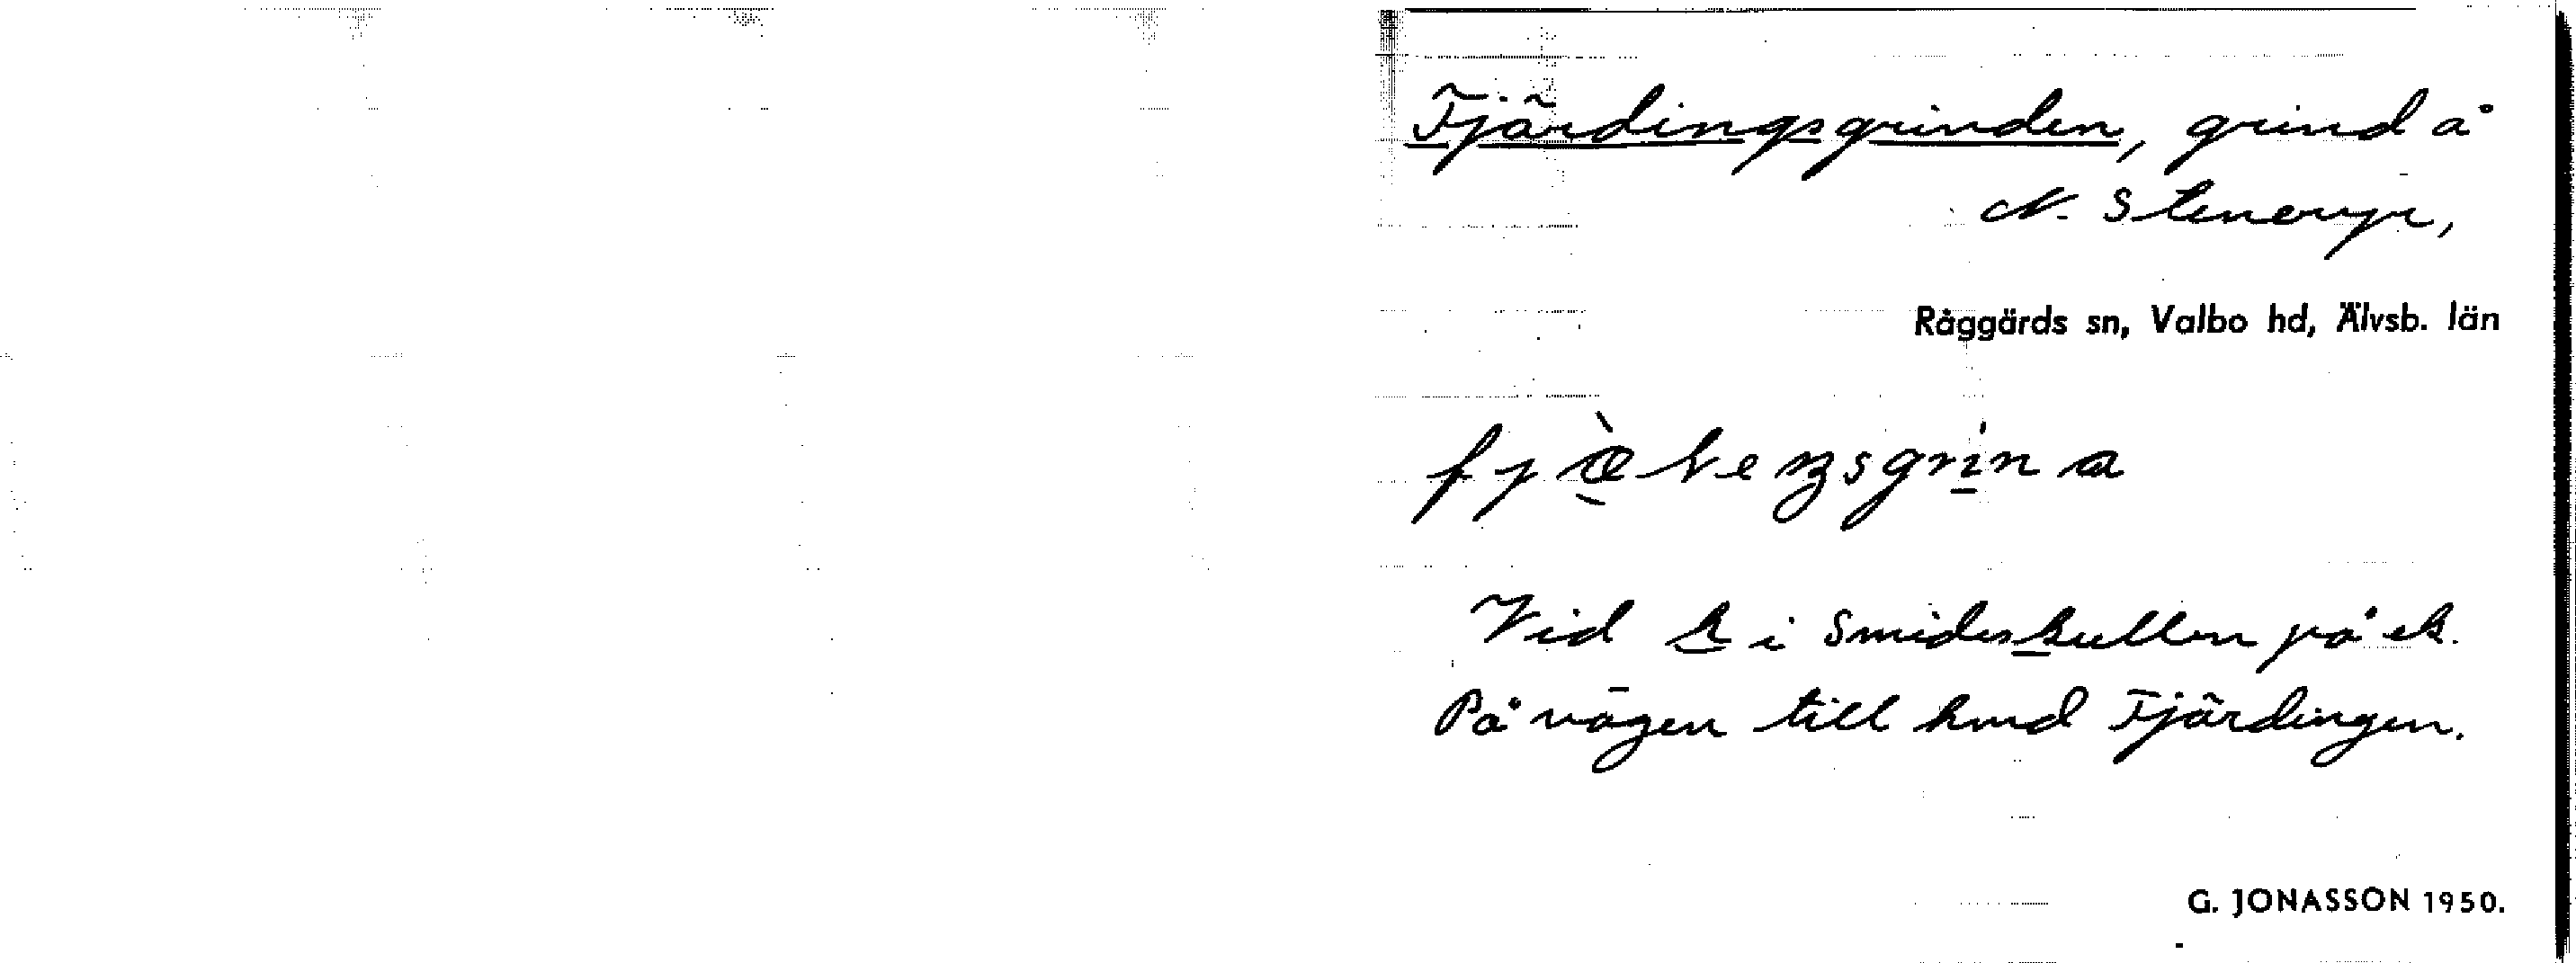 Fjärdingsgrinden, grind å
N. Steneryr,
Råggärds sn, Valbo hd, Älvsb. län
Vid k i Smideskullen på ek.
På vägen till hmd Fjärdingen.
G. JONASSON 1950.